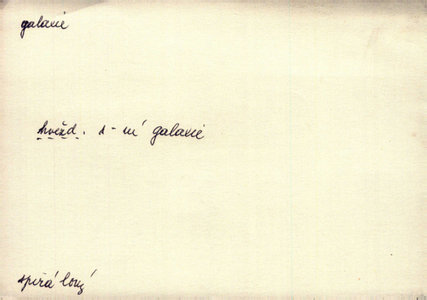 galaxie
hvězd. s-ní galaxie
spirálový